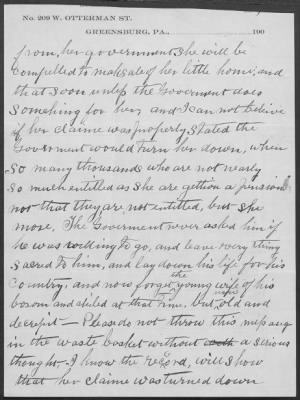 No. 209 W. OTTERMAN ST.
GREENSBURG, PA., 190
from, her government she will be
compelled to make sale of her little home, and
that soon unless the Goverment does
something for her, and I can not believe
if her claime was properly stated the
Government would turn her down, when
so many thousands who are not nearly
so much entitled as she are getting a pension
not that they are not entitled, but she
more. The Goverment never asked him if
he was willing to go, and leave every thing
sacred to him, and lay down his life for his
Country, and now forget the young wife of his
bosom and child at that time, but now old and
decrepit - Please do not throw this missang
in the waste basket without a serious
thought - I know the record, will show
that her claime was turned down